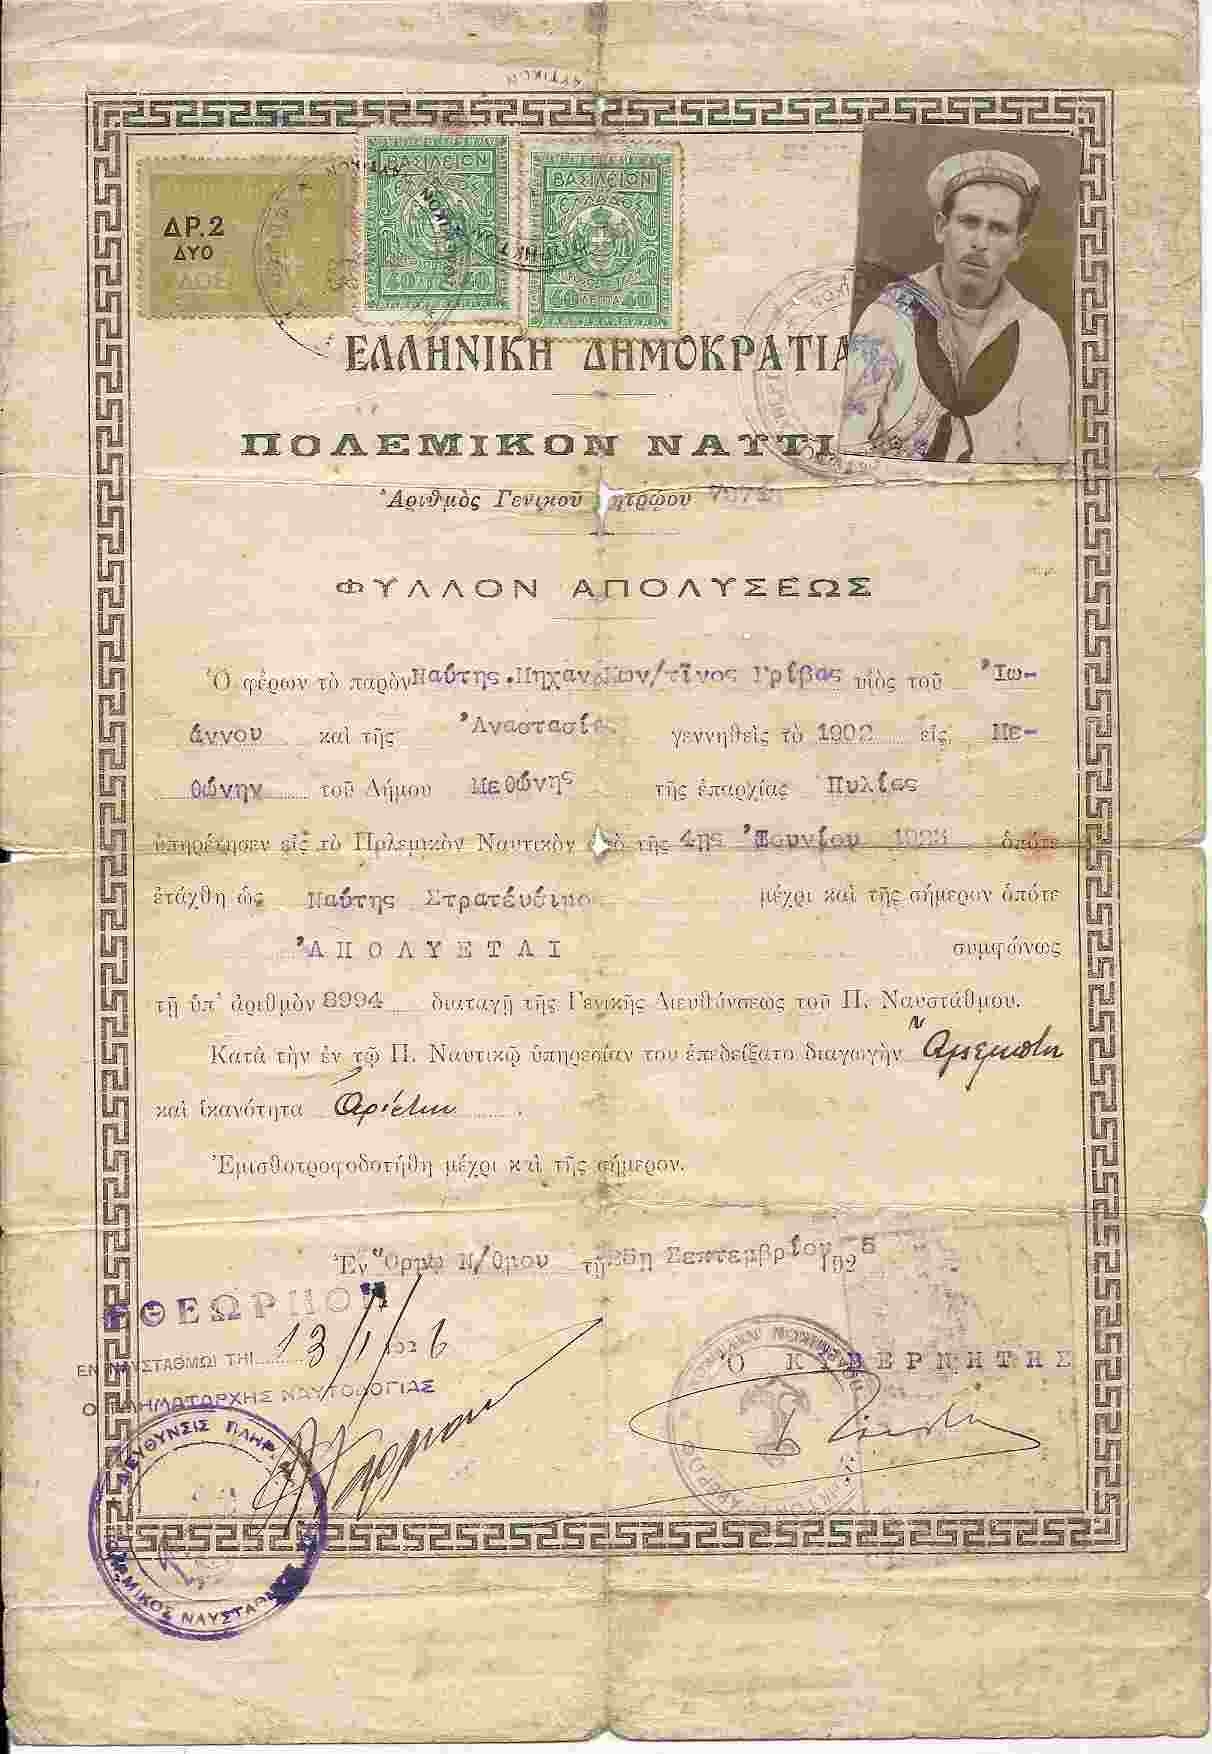 ΔΡ.2
ΔΥΟ
ΒΑΣΙΛΕΙΟΝ
ΕΛΛΑΔΟΣ
40 ΛΕΠΤΑ 40
ΒΑΣΙΛΕΙΟΝ
ΕΛΛΑΔΟΣ
40 ΛΕΠΤΑ 40
ΕΛΛΗΝΙΚΗ ΔΗΜΟΚΡΑΤΙΑ
ΠΟΛΕΜΙΚΟΝ ΝΑΥΤΙ
Ἀριθμὸς Γενικοῦ ητρώου
ΦΥΛΛΟΝ ΑΠΟΛΥΣΕΩΣ
Ὁ φέρων τὸ παρὸν Ναύτης.Μηχαν.Κων/τῖνος Γρίβας υἱὸς τοῦ Ἰω-
άννου καὶ τῆς Ἀναστασίας γεννηθεὶς τὸ 1902 εἰς Με-
θώνην τοῦ Δήμου Μεθώνης τῆς ἐπαρχίας Πυλίας
ὑπηρέτησεν εἰς τὸ Πολεμικὸν Ναυτικὸν ἀπὸ τῆς 4ης Ἰουνίου 1923 ὁπότε
ἐτάχθη ὡς Ναύτης Στρατεύσιμος μέχρι καὶ τῆς σήμερον ὁπότε
ἈΠΟΛΥΕΤΑΙ συμφώνως
τῇ ὑπ' ἀριθμὸν 8994 διαταγῇ τῆς Γενικῆς Διευθύνσεως τοῦ Π. Ναυστάθμου.
Κατὰ τὴν ἐν τῷ Π. Ναυτικῷ ὑπηρεσίαν του ἐπεδείξατο διαγωγὴν Ἄμεμπτη
καὶ ἱκανότητα Ἀρίστην .
Ἐμισθοτροφοδοτήθη μέχρι καὶ τῆς σήμερον.
Ἐν Ὅρμῳ Ν/θμου τῇ 25η Σεπτεμβρίου 1925
ΕΘΕΩΡΗΘΗ
ΕΝ ΝΑΥΣΤΑΘΜΩΙ ΤΗΙ 13/1/1926
Ο ΤΜΗΜΑΤΑΡΧΗΣ ΝΑΥΤΟΛΟΓΙΑΣ
Ὁ ΚΥΒΕΡΝΗΤΗΣ
ΔΙΕΥΘΥΝΣΙΣ ΠΛΗΡ
ΠΟΛΕΜΙΚΟΣ ΝΑΥΣΤΑΘΜΟΣ